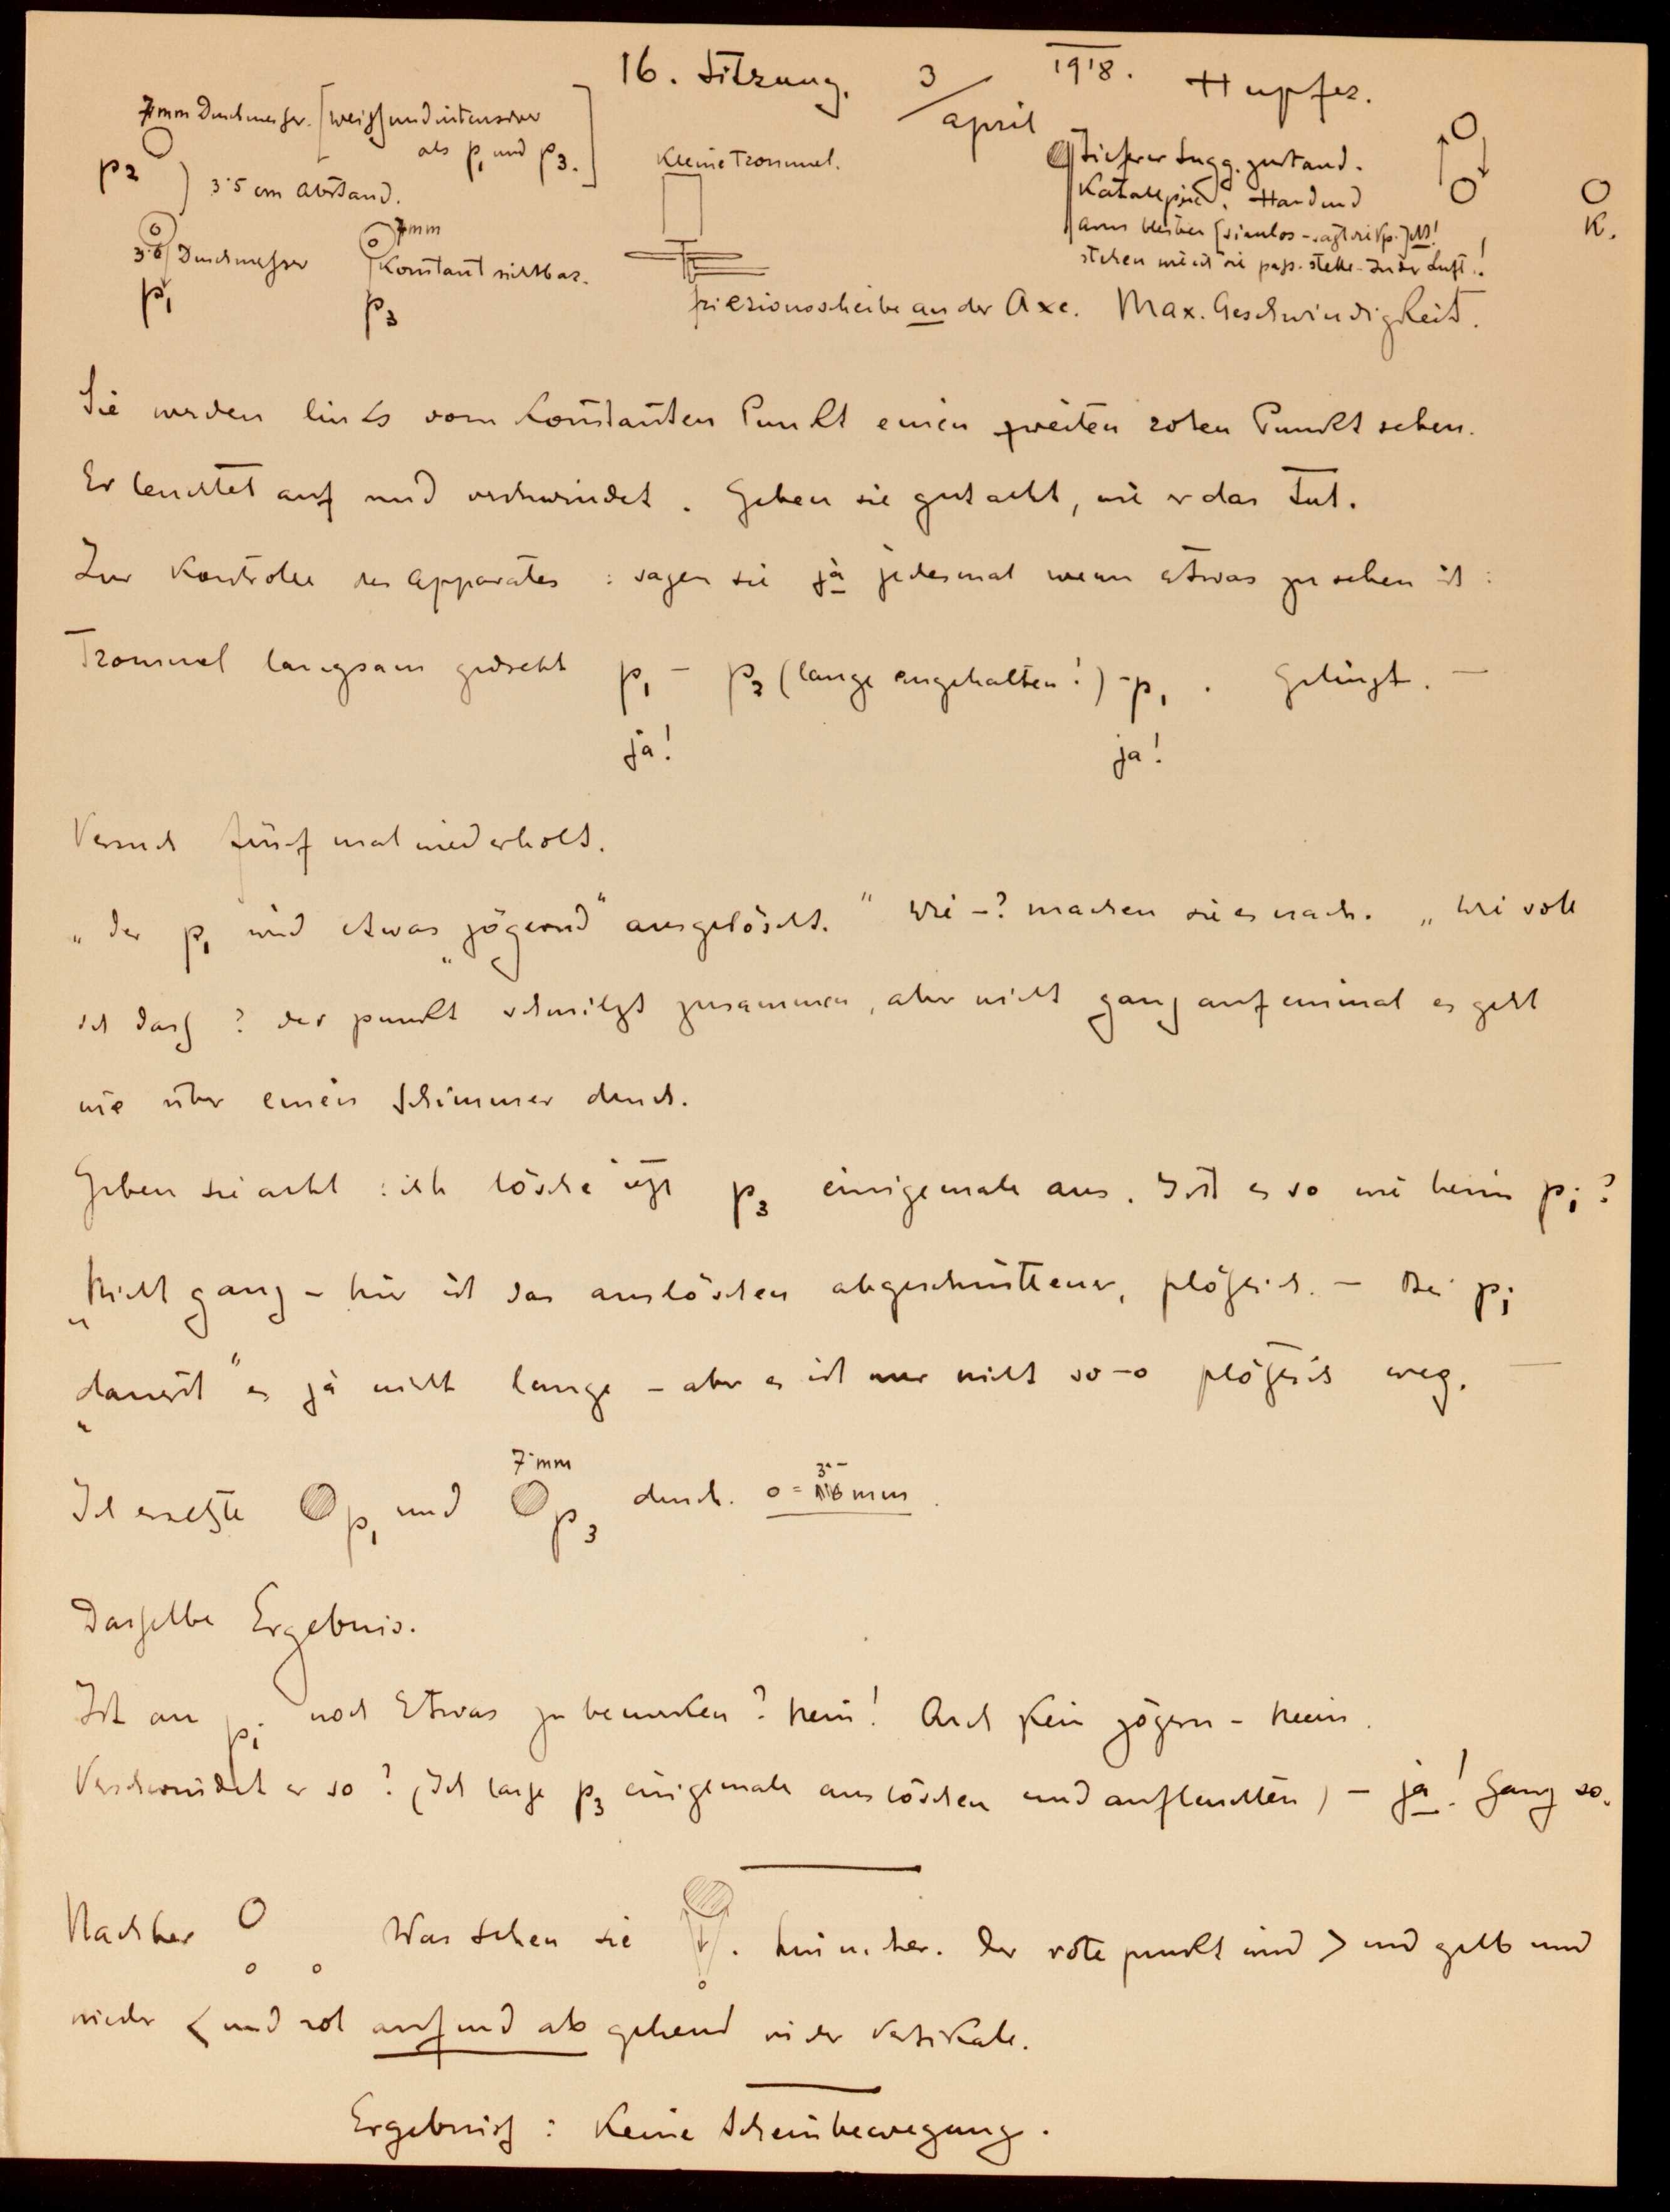 16. Sitzung. 3/April 1918. Hupfer.
7mm Durchmesser. [weiss und intensiver
als p1 und p3.]
p2
3·5 cm Abstand.
Kleine Trommel.
Tieferer Sugg. zustand.
Katalepsie. Hand und
Arm bleiben [sinnlos - sagt die Vp.] jetzt!
stehen wie ich sie pass. stelle - In der Luft!
K.
7mm
3·5 Durchmesser
Konstant sichtbar.
p1
p3
Friczionsscheibe an der Axe. Max. Geschwindigkeit.
Sie werden links vom konstanten Punkt einen zweiten roten Punkt sehen.
Er leuchtet auf und verschwindet. Geben sie gut acht, wie er das tut.
Zur Kontrolle des Apparates: sagen sie ja jedesmal wenn etwas zu sehen ist:
Trommel langsam gedreht p1 - p2 (lange angehalten!) - p1. Gelingt. —
ja! ja!
Versuch fünf mal wiederholt.
„Der p1 wird etwas „zögernd" ausgelöscht." Wie -? machen sie es nach. „Wie soll
ich das? der punkt schmilzt zusammen, aber nicht ganz auf einmal es geht
wie über einen Schimmer durch.
Geben sie acht: ich lösche jetzt p3 einigemale aus. Ist es so wie beim p1?
„Nicht ganz - hier ist das auslöschen abgeschnittener, plötzlich. — Bei p1
„dauert" es ja nicht lange - aber es ist nur nicht so-o plötzlich weg. —
7·mm
Ich ersetzte p1 und p3 durch o = 3·5 mm.
Dasselbe Ergebnis.
Ist an p1 noch Etwas zu bemerken? Nein! Auch kein zögern - Nein.
Verschwindet er so? (Ich lasse p3 einigemale auslöschen und aufleuchten) - ja! Ganz so.
Nachher Was sehen sie. hin u. her. Der rote punkt wird > und gelb und
wieder < und rot auf und ab gehend in der Vertikale.
Ergebniss: Keine Scheinbewegung.